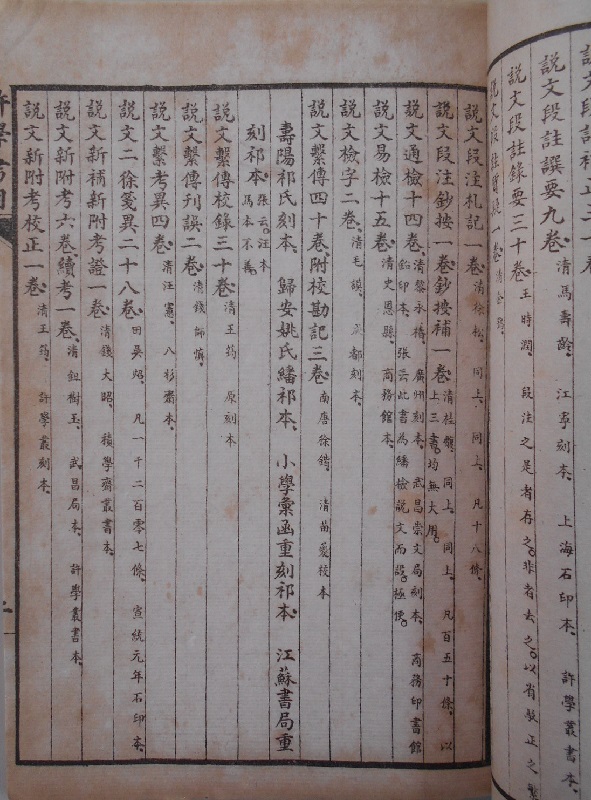 說文段註譔要九卷、清馬壽齡、江寧刻本、上海石印本、許學叢書本、
說文段註錄要三十卷、王時潤、段注之是者存之。非者去之。以省
說文段注札記一卷、清徐松、同上、同上、凡十八條、
說文段注鈔按一卷鈔按補一卷、清桂馥、同上、同上、凡百五十條、以上三書均無大用。
說文通檢十四卷、清黎永椿、廣州刻本、武昌崇文局刻本、商務印書館鉛印本、張云此書為繙檢說文而設。極便。
說文易檢十五卷、清史恩緜、商務館本、
說文檢字二卷、清毛謨、成都刻本、
說文繫傳四十卷、附校勘記三卷、南唐徐鍇、清苗夔校本
壽陽祁氏刻本、歸安姚氏繙祁本、小學彙函重刻祁本、江蘇書局重
刻祁本、張云、汪本馬本不善。
說文繫傳校錄三十卷、清王筠、原刻本
說文繫傳刊誤二卷、清錢師慎、
說文繫考異四卷、清汪憲、八杉齋本、
說文二徐箋異二十八卷、田吳炤、凡一千二百零七條、宣統元年石印本、
說文新補新附考證一卷、清錢大昭、積學齋叢書本、
說文新附考六卷、續考一卷、清鈕樹玉、武昌局本、許學叢書本、
說文新附考校正一卷、清王筠、許學叢刻本、